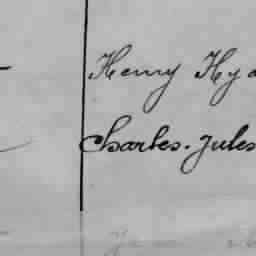 Henry Hya
Charles. Jules